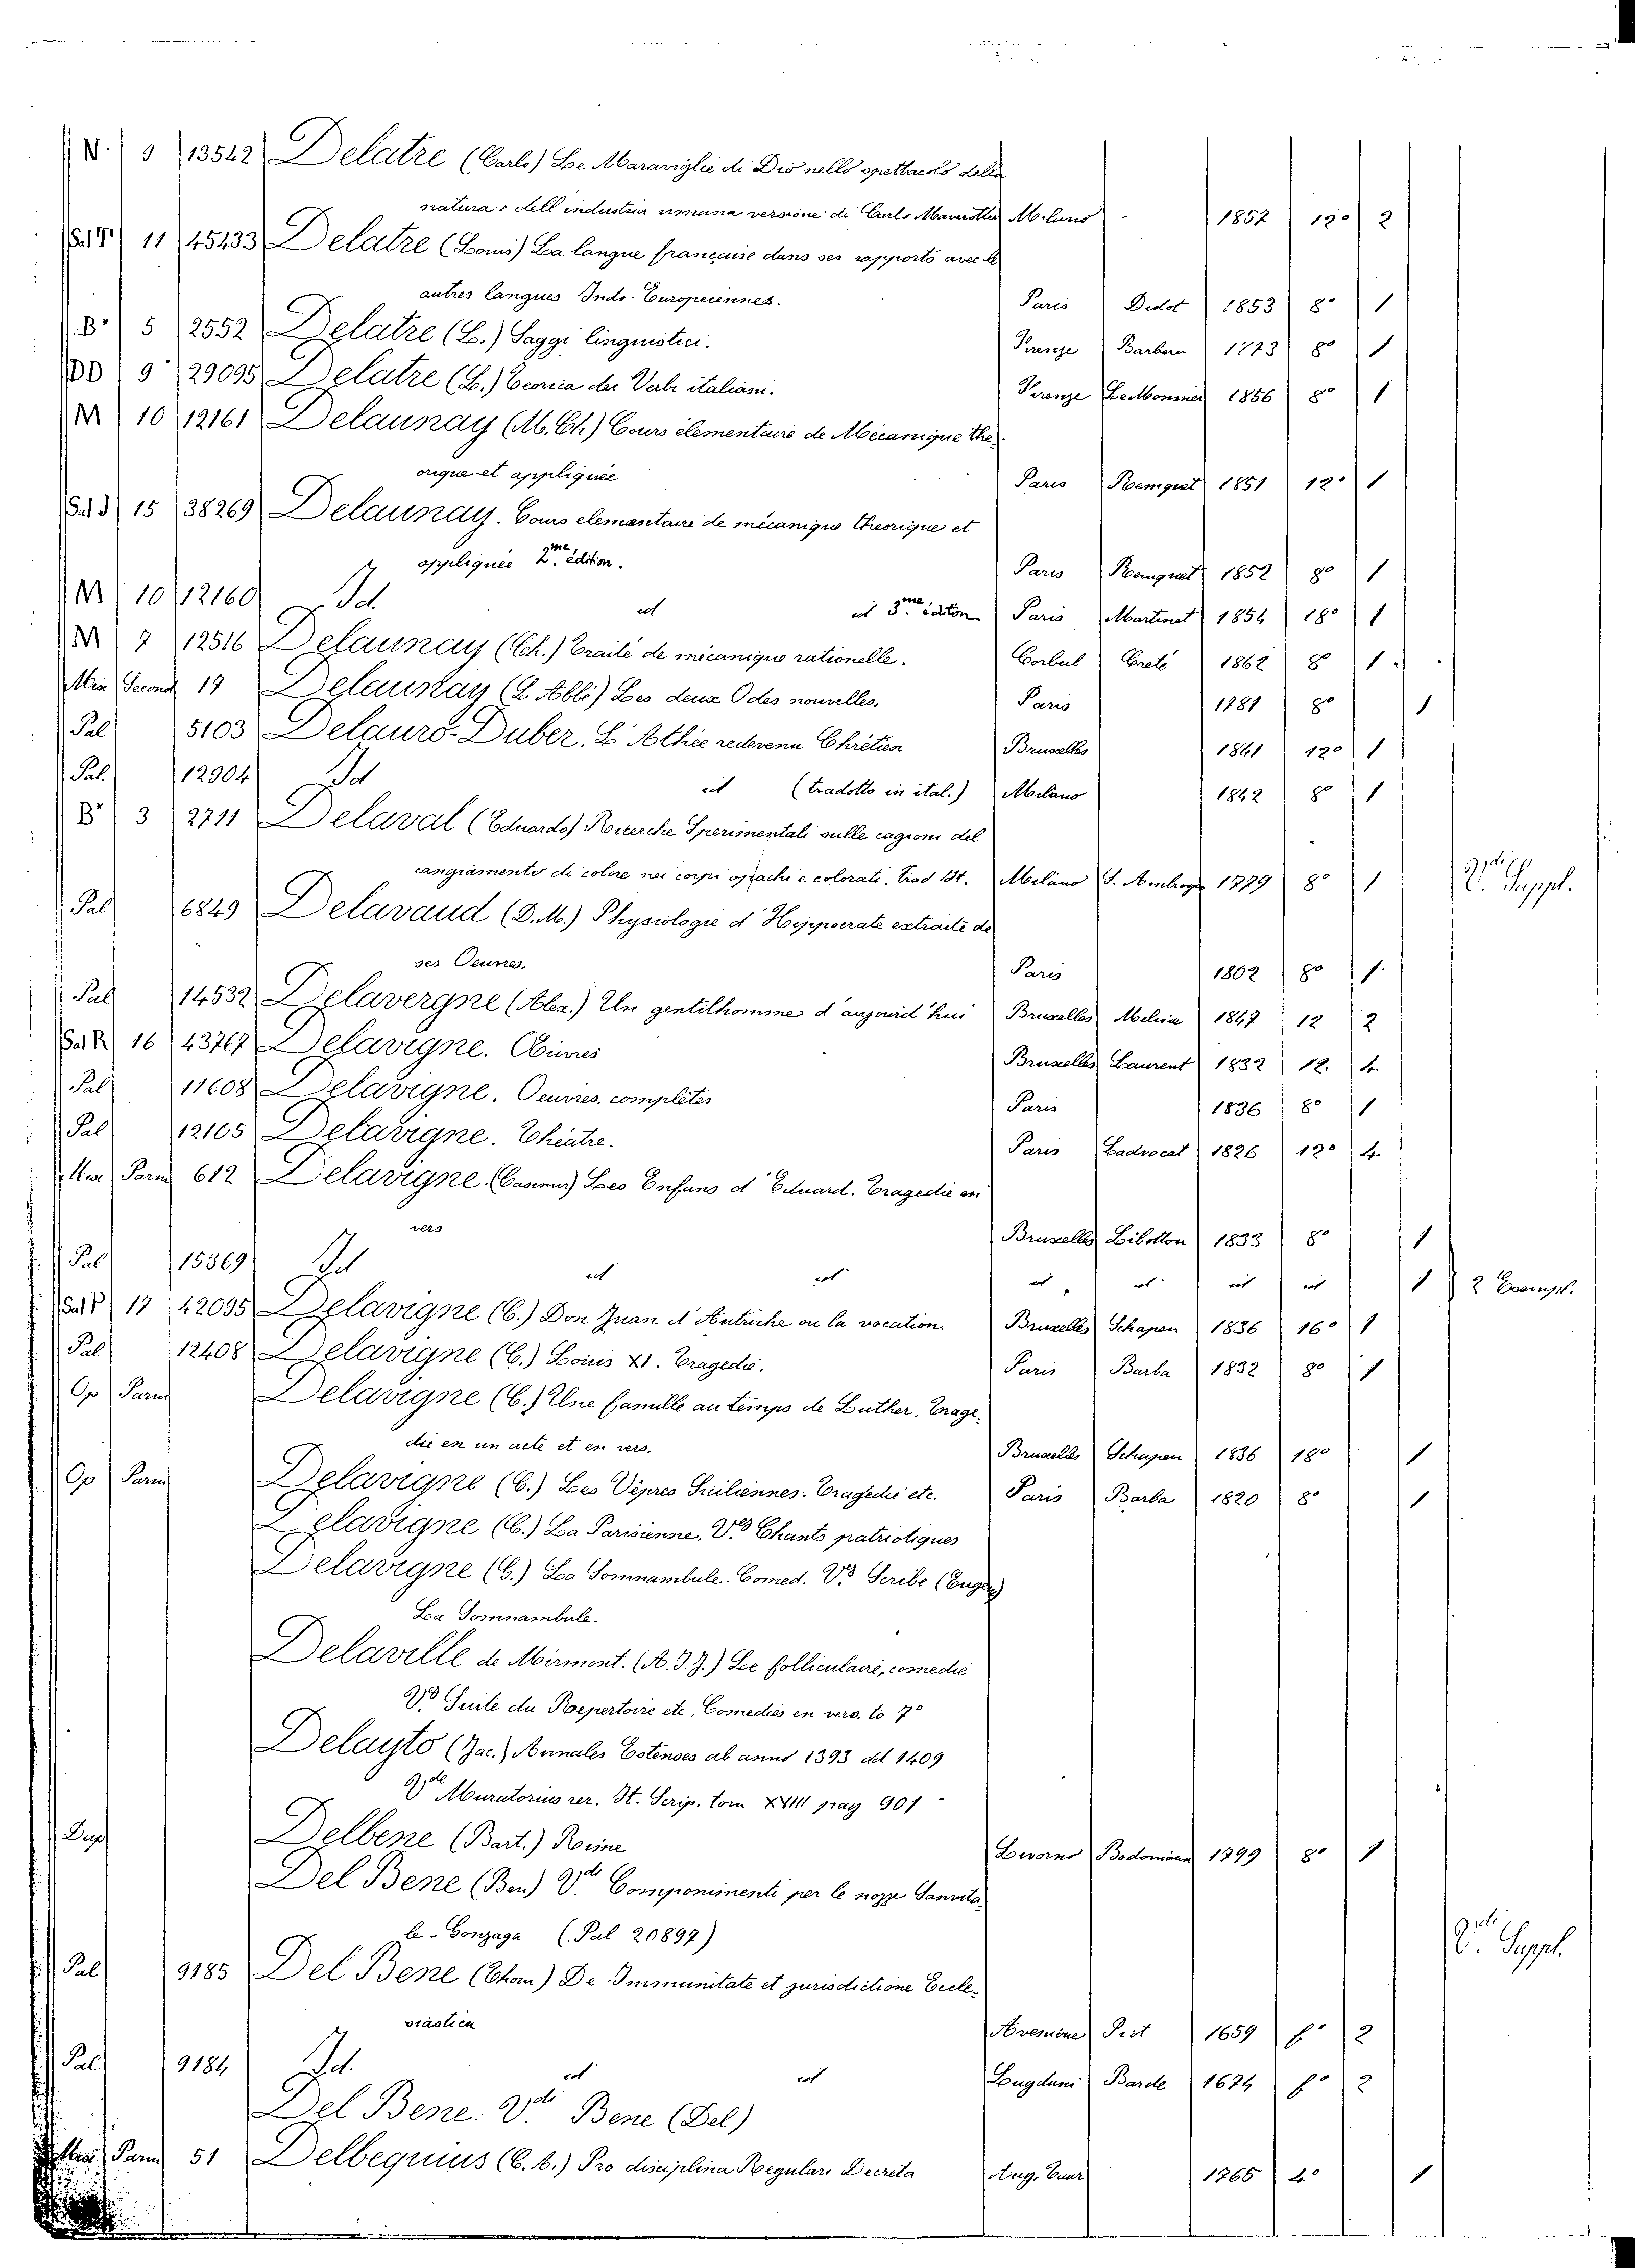 N. 9 13542 Delatre (Carlo) Le Maraviglie di Dio nello spettacolo della
natura e dell'industria umana versione di Carlo Milano 1857 12° 2
11 45433 Delatre (Louis) La langue française dans ses rapports avec le
autres langues Indo-Européennes. Paris Didot 1853 8° 1
B' 5 2552 Delatre (L.) Saggi linguistici. Firenze Barbera 1873 8° 1
DD 9 29095 Delatre (L.) Teorica dei Verbi italiani. Firenze Le Monnier 1856 8° 1
M 10 12161 Delaunay (M. Ch) Cours élementaire de Mécanique the-
orique et appliquée Paris 1851 12° 1
15 38269 Delaunay. Cours elementaire de mécanique theorique et
appliquée 2.me édition. Paris 1852 8° 1
M 10 12160 Id. id id 3.me édition Paris Martinet 1854 18° 1
M 7 12516 Delaunay (Ch.) Traité de mécanique rationelle. Corbeil Creté 1862 8° 1
Second 17 Delaunay (L'Abbé) Les deux Odes nouvelles. Paris 1781 8° 1
Pal 5103 Delauro-Duber. L'Athée redevenu Chrétien Bruxelles 1841 12° 1
Pal. 12904 Id id (tradotto in ital.) Milano 1842 8° 1
B' 3 2711 Delaval (Eduardo) Ricerche Sperimentali sulle cagioni del
cangiamento di colore nei corpi opachi e colorati. Trad It. Milano S. Ambrogi 1779 8° 1 V. Suppl.
Pal 6849 Delavaud (D.M.) Physiologie d'Hyppocrate extraite de
ses Oeuvres. Paris 1802 8° 1
Pal 14532 Delavergne (Alex.) Un gentilhomme d'aujourd'hui Bruxelles Meline 1847 12 2
16 43767 Delavigne. Oeuvres Bruxelles Laurent 1832 12. 4.
Pal 11608 Delavigne. Oeuvres complètes Paris 1836 8° 1
Pal 12105 Delavigne. Théatre. Paris Ladvocat 1826 12° 4
Parm 612 Delavigne (Casimir) Les Enfans d'Eduard. Tragedie en
vers Bruxelles Libotton 1833 8° 1
Pal 15369 Id id id id id id id 1 2 Exempl.
17 42095 Delavigne (C.) Don Juan d'Autriche ou la vocation. Bruxelles Schapen 1836 16° 1
Pal 12408 Delavigne (C.) Louis XI. Tragedie. Paris Barba 1832 8° 1
Op Parm Delavigne (C.) Une famille au temps de Luther. Trage-
die en un acte et en vers. Bruxelles Schapen 1836 18° 1
Op Parm Delavigne (C.) Les Vêpres Siciliennes. Tragedie etc. Paris Barba 1820 8° 1
Delavigne (C.) La Parisienne. V. Chants patriotiques
Delavigne (G.) La Somnambule. Comed. V. Scribe (Eugen)
La Somnambule.
Delaville de Mirmont. (A. J. J.) Le folliculaire, comedie
V. Suite du Repertoire etc. Comedies en vers. to 7°
Delayto (Jac.) Annales Estenses ab anno 1393 ad 1409
V.de Muratorius rer. It. Scrip. tom XVIII pag 901
Dup Delbene (Bart.) Rime Livorno 1799 8° 1
Del Bene (Ben) V.di Componimenti per le nozze Sanvita-
le-Gonzaga (Pal 20897) V. Suppl.
Pal 9185 Del Bene (Thom) De Immunitate et jurisdictione Eccle-
siastica Avenione 1659 f° 2
Pal 9184 Id. id id Lugduni Barde 1674 f° 2
Del Bene. V.di Bene (Del)
Parm 51 Delbequius (C. b.) Pro disciplina Regulari Decreta Aug. Taur 1765 4° 1